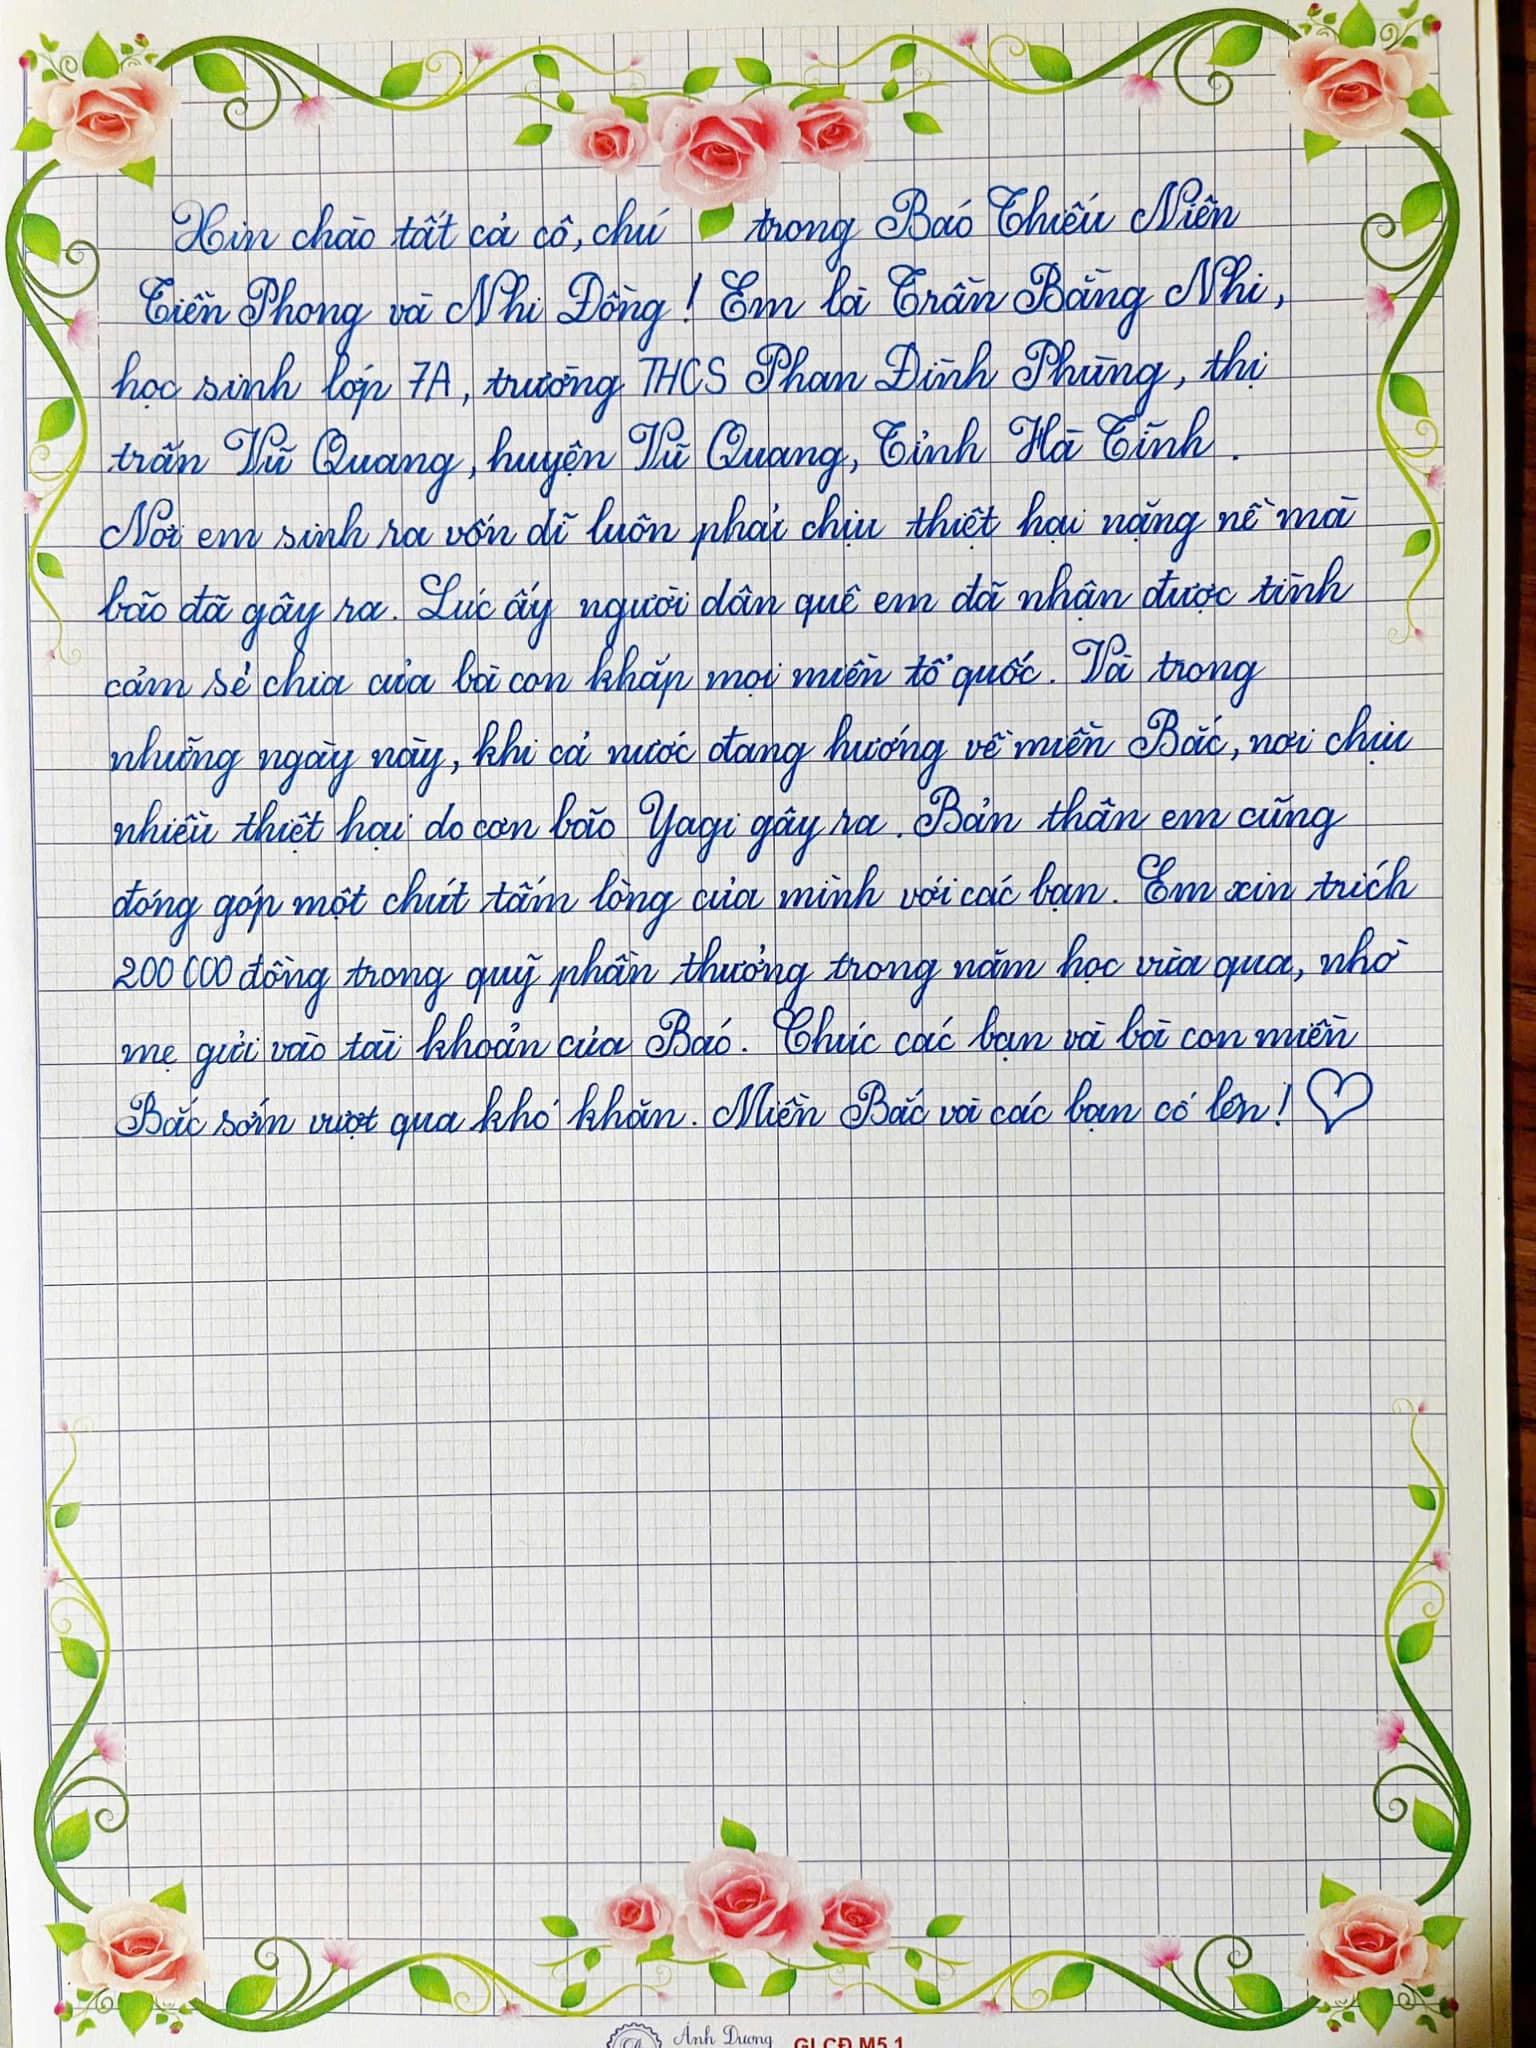 Xin chào tất cả cô, chú trong Báo Thiếu Niên
Tiền Phong và Nhi Đồng! Em là Trần Bằng Nhi,
học sinh lớp 7A, trường THCS Phan Đình Phùng, thị
trấn Vũ Quang, huyện Vũ Quang, Tỉnh Hà Tĩnh.
Nơi em sinh ra vốn dĩ luôn phải chịu thiệt hại nặng nề mà
bão đã gây ra. Lúc ấy người dân quê em đã nhận được tình
cảm sẻ chia của bà con khắp mọi miền tổ quốc. Và trong
những ngày này, khi cả nước đang hướng về miền Bắc, nơi chịu
nhiều thiệt hại do cơn bão Yagi gây ra. Bản thân em cũng
đóng góp một chút tấm lòng của mình với các bạn. Em xin trích
200 000 đồng trong quỹ phần thưởng trong năm học vừa qua, nhờ
mẹ gửi vào tài khoản của Báo. Chúc các bạn và bà con miền
Bắc sớm vượt qua khó khăn. Miền Bắc và các bạn cố lên!
Ánh Dương GLCĐ M5.1